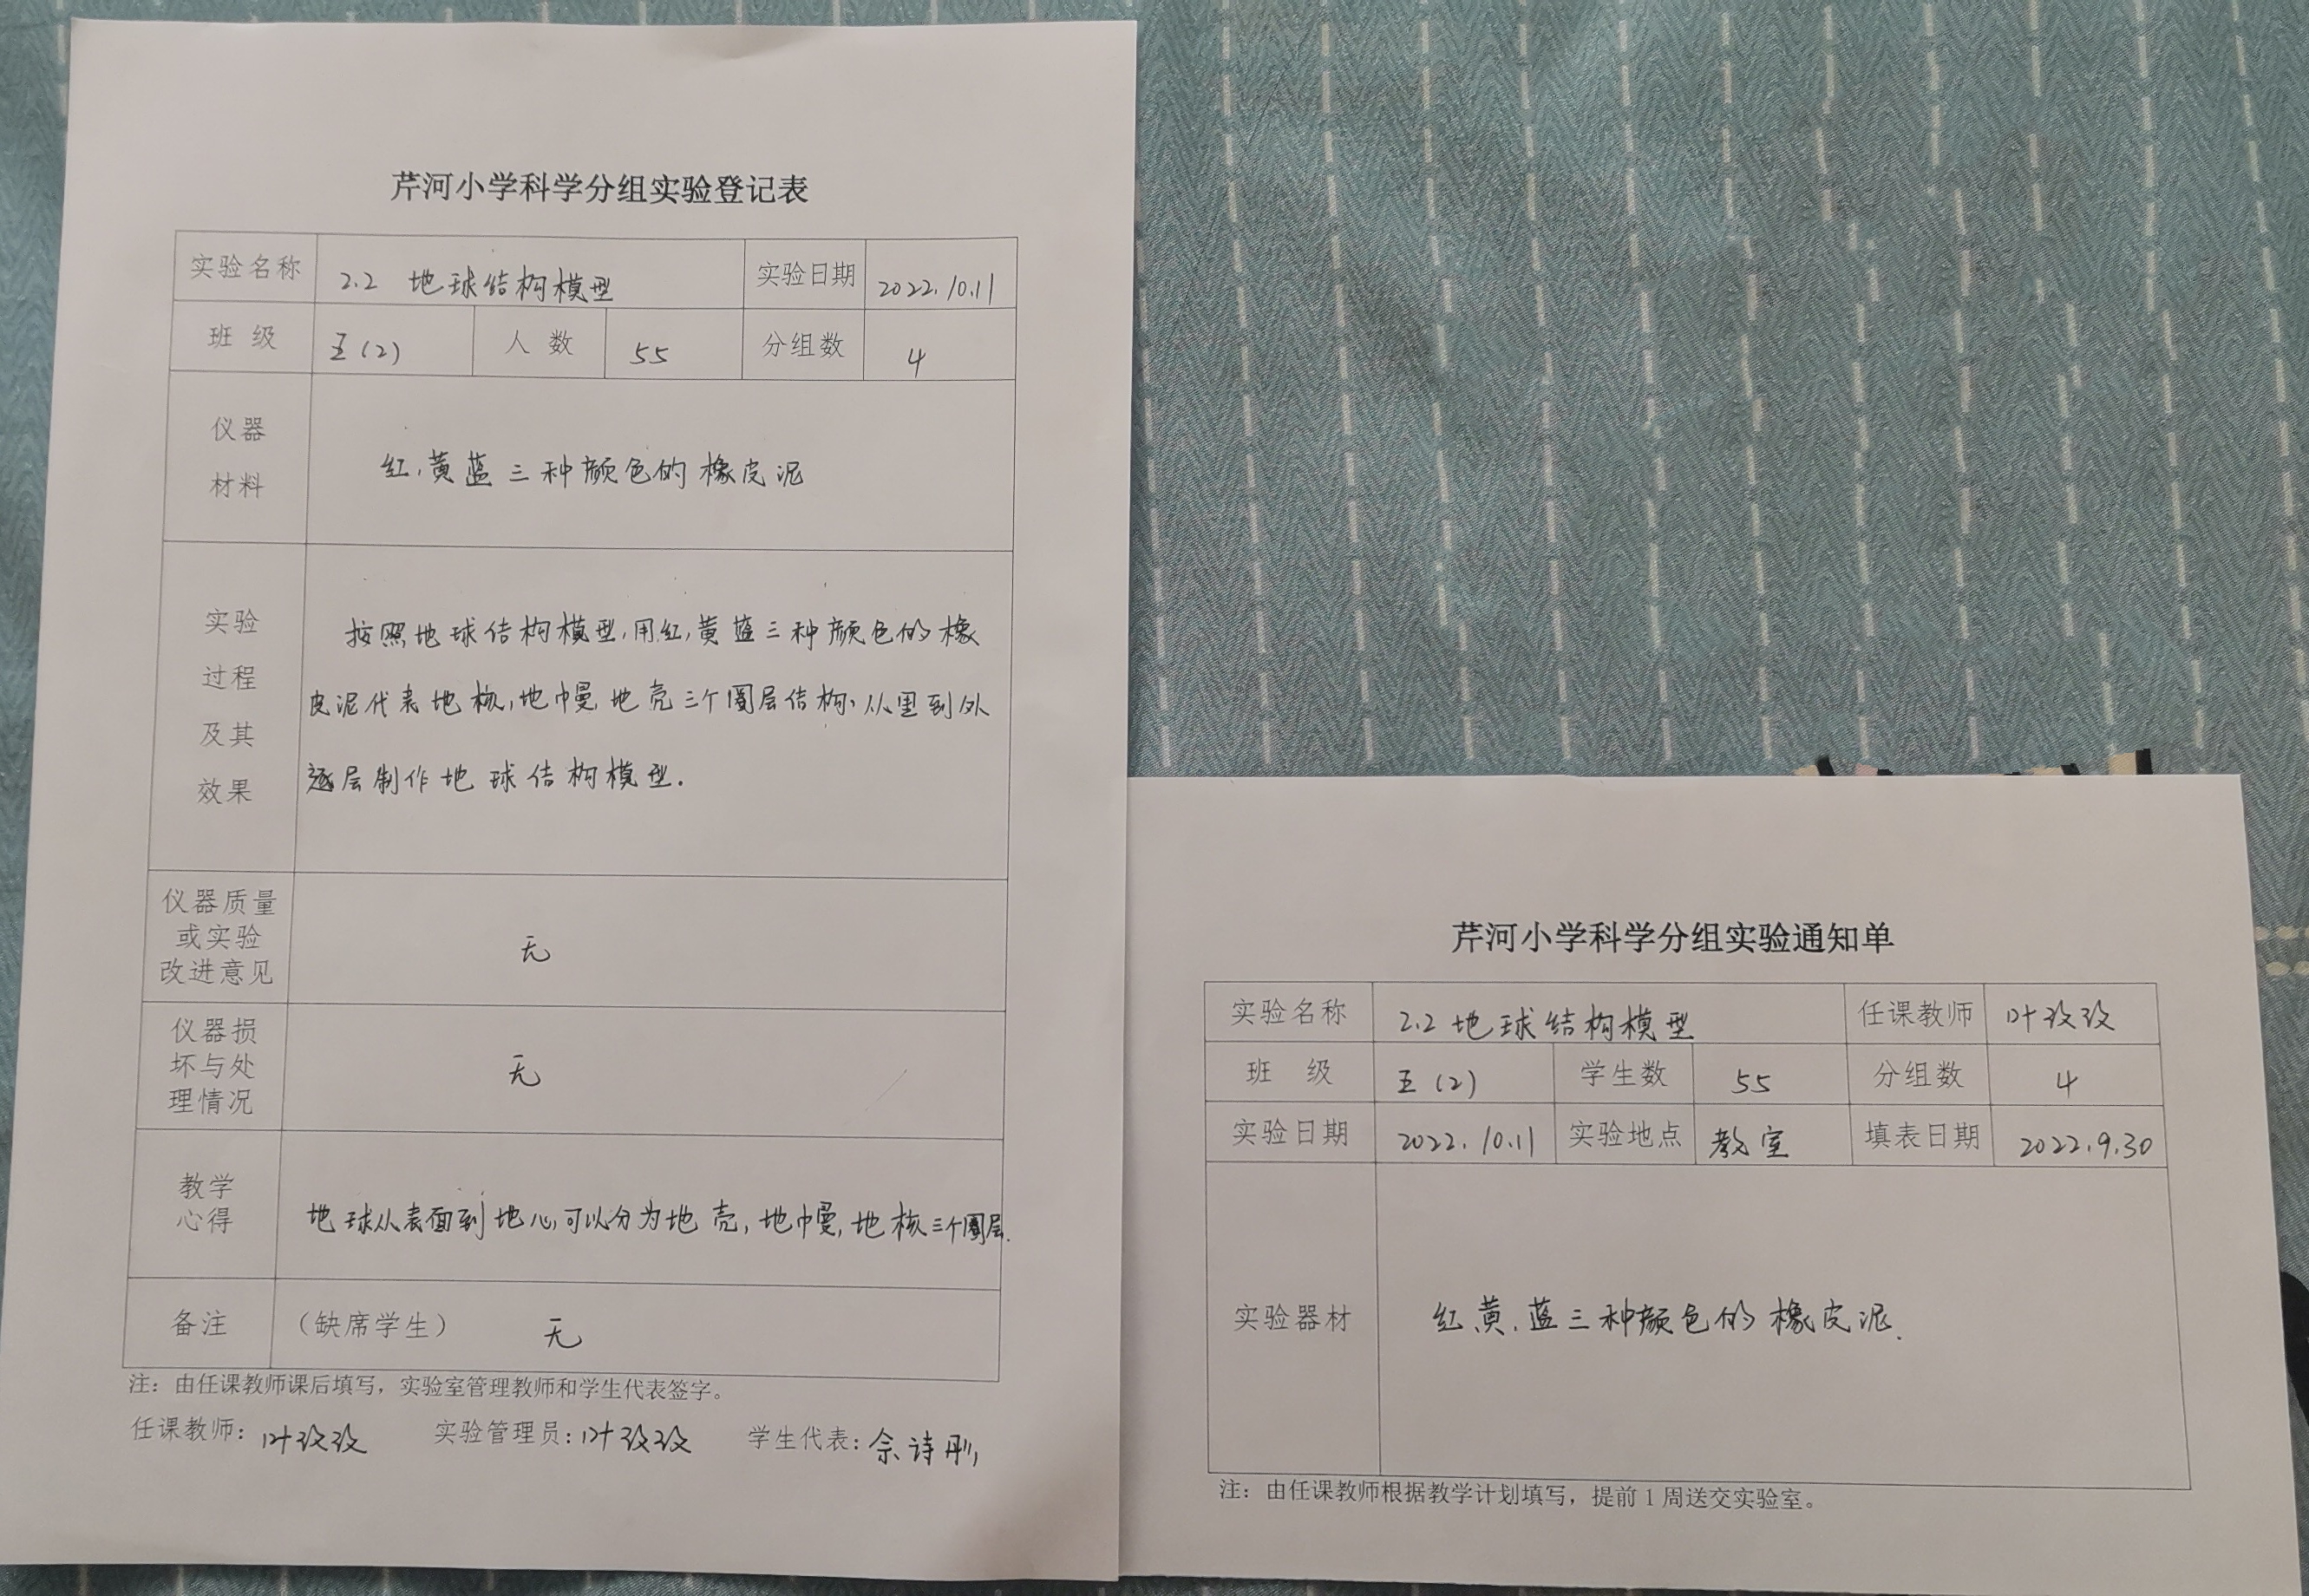 芹河小学科学分组实验登记表
实验名称 2.2 地球结构模型 实验日期 2022.10.11
班 级 五(2) 人 数 55 分组数 4
仪器
材料
红,黄蓝三种颜色的橡皮泥
实验
过程
及其
效果
按照地球结构模型,用红,黄蓝三种颜色的橡
皮泥代表地核,地幔地壳三个圈层结构,从里到外
逐层制作地球结构模型.
仪器质量
或实验
改进意见
无
仪器损
坏与处
理情况
无
教学
心得
地球从表面到地心,可以分为地壳,地幔,地核三个圈层.
备注 (缺席学生) 无
注：由任课教师课后填写，实验室管理教师和学生代表签字。
任课教师：叶玫玫 实验管理员：叶玫玫 学生代表：佘诗彤
芹河小学科学分组实验通知单
实验名称 2.2 地球结构模型 任课教师 叶玫玫
班 级 五(2) 学生数 55 分组数 4
实验日期 2022.10.11 实验地点 教室 填表日期 2022.9.30
实验器材 红黄,蓝三种颜色的橡皮泥.
注：由任课教师根据教学计划填写，提前1周送交实验室。